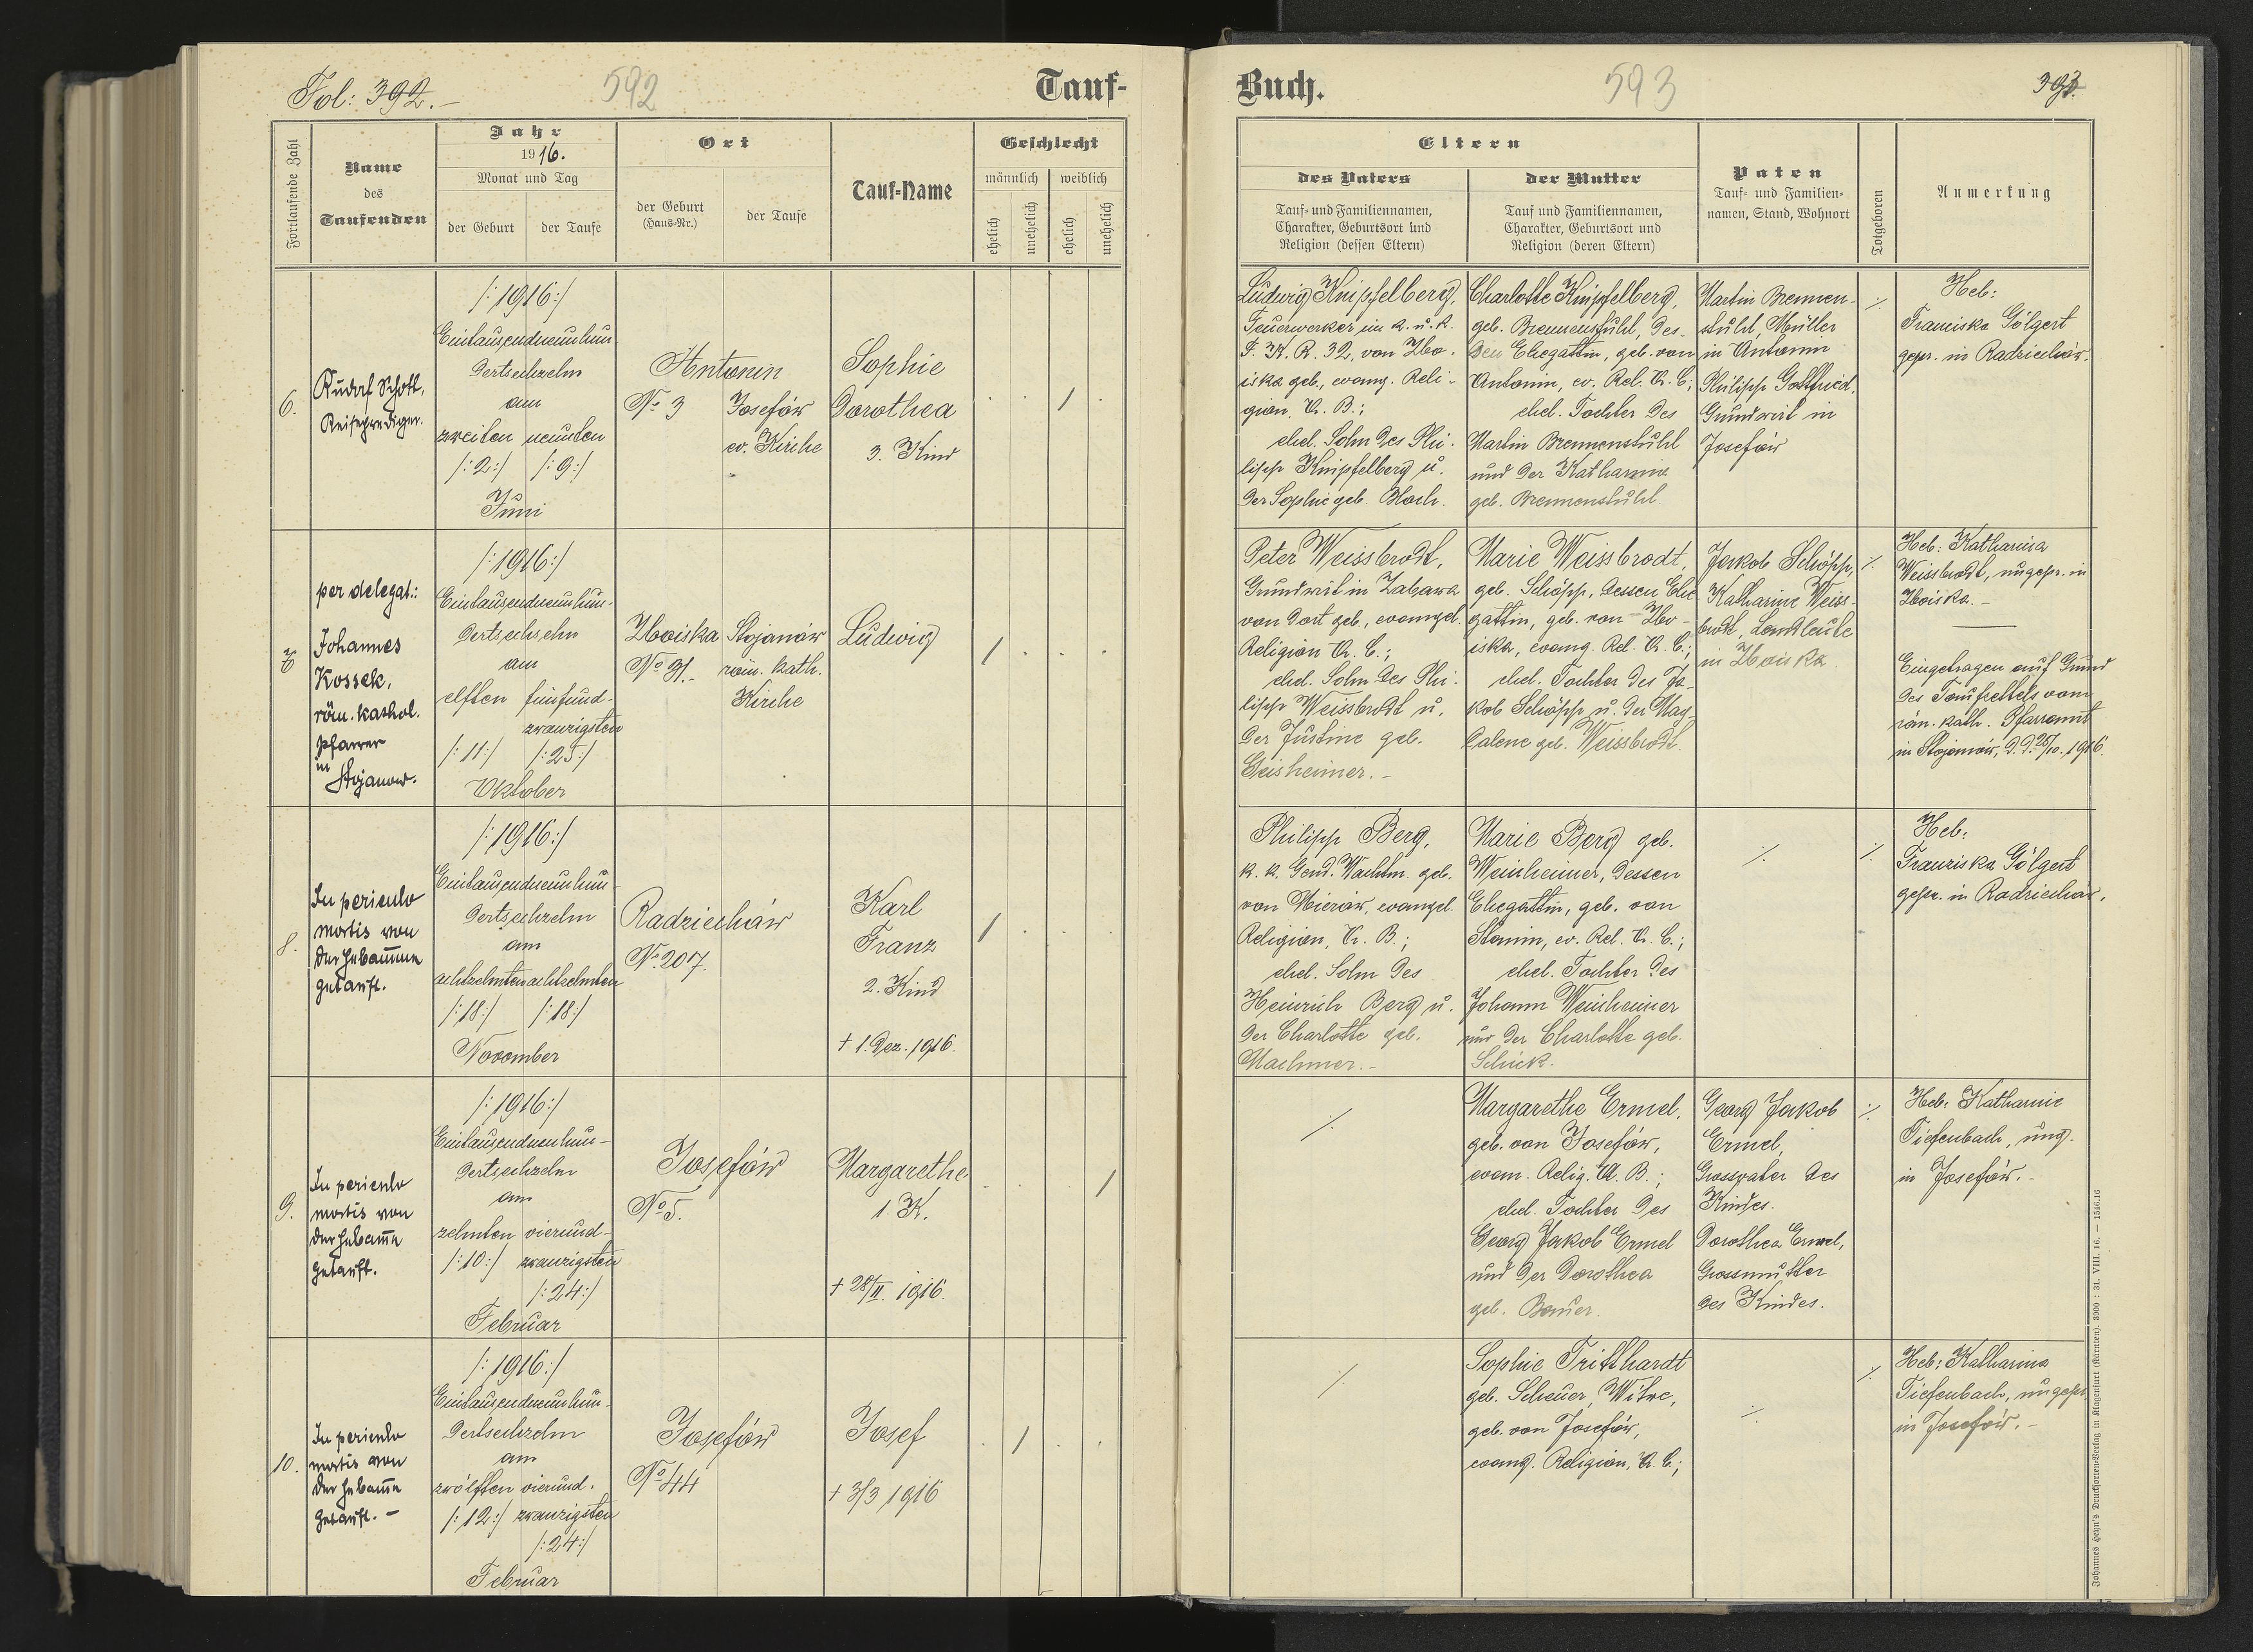 Fol: 392.-
592
Tauf-
Fortlaufende Zahl
Name
des
Taufenden
Jahr
1916.
Monat und Tag
der Geburt
der Taufe
Ort
der Geburt
(Haus-Nr.)
der Taufe
Tauf-Name
Geschlecht
männlich
weiblich
ehelich
unehelich
ehelich
unehelich
6.
Rudolf Schott,
Reiseprediger.
/:1916:/
Eintausendneunhun-
dertsechzehn
am
zweiten neunten
/:2:/ /:9:/
Juni
Antonin
No 3 Josefów
ev. Kirche
Sophie
Dorothea
3. Kind
per delegat.:
Johannes
Kossek,
röm. kathol.
Pfarrer
in
Stojanow.
/:1916:/
Eintausendneunhun-
dertsechzehn
am
elften fünfund-
zwanzigsten
/:11:/ /:25:/
Oktober
Zboiska Stojanów
No 31.- röm. kath.
Kirche
Ludwig
8.
In periculo
mortis von
der Hebamme
getauft.
/:1916:/
Eintausendneunhun-
dertsechzehn
am
achtzehnten achtzehnten
/:18:/ /:18:/
November
Radziechów
No 207.
Karl
Franz
2. Kind
+ 1. Dez. 1916.
9.
In periculo
mortis von
der Hebam̄e
getauft.
/:1916:/
Eintausendneunhun-
dertsechzehn
am
zehnten vierund-
/:10:/ zwanzigsten
/:24:/
Februar
Josefów
No 5.
Margarethe
1. K.
+ 28/II. 1916.
10.
In periculo
mortis von
der Hebam̄e
getauft. -
/:1916:/
Eintausendneunhun-
dertsechzehn
am
zwölften vierund-
/:12:/ zwanzigsten
/:24:/
Februar
Josefów
No 44
Josef
+ 3/3 1916
Buch.
593
393.
Eltern
des Vaters
Tauf- und Familiennamen,
Charakter, Geburtsort und
Religion (dessen Eltern)
der Mutter
Tauf und Familiennamen,
Charakter, Geburtsort und
Religion (deren Eltern)
Paten
Tauf- und Familien-
namen, Stand, Wohnort
Totgeboren
Anmerkung
Ludwig Knipfelberg,
Feuerwerker im k. u. k.
F. K. R. 32, von Zbo-
iska geb., evang. Reli-
gion, A. B.;
ehel. Sohn des Phi-
lipp Knipfelberg u.
der Sophie geb. Koch.
Charlotte Knipfelberg,
geb. Brennenstuhl, des-
sen Ehegattin, geb. von
Antonin, ev. Rel. A. C.;
ehel. Tochter des
Martin Brennenstuhl
und der Katharina
geb. Brennenstuhl.
Martin Brennen-
stuhl, Müller
in Antonin
Philipp Gottfried,
Grundwirt in
Josefów
Heb:
Franciska Gölgert
gepr. in Radziechów.
Peter Weissbrodt,
Grundwirt in Zabawa
von dort geb., evangel.
Religion A. C.;
ehel. Sohn des Phi-
lipp Weissbrodt u.
der Justine geb.
Geisheimer.-
Marie Weissbrodt,
geb. Schöpp, dessen Ehe-
gattin, geb. von Zbo-
iska, evang. Rel. A. C.;
ehel. Tochter des Ja-
kob Schöpp u. der Mag-
dalene geb. Weissbrodt.
Jakob Schöpp,
Katharine Weiss-
brodt, Landleute
in Zboiska.
Heb: Katharina
Weissbrodt, ungepr. in
Zboiska.-
Eingetragen auf Grund
des Taufzettels vom
röm. kath. Pfarramt
in Stojanów, d.d. 25/10. 1916.
Philipp Berg,
k. k. Gend. Wachtm. geb.
von Mierów, evangel.
Religion, A. B.;
ehel. Sohn des
Heinrich Berg u.
der Charlotte geb.
Machmer.-
Marie Berg geb.
Weinheimer, dessen
Ehegattin, geb. von
Stanin, ev. Rel. A. C.;
ehel. Tochter des
Johann Weinheimer
und der Charlotte geb.
Schick.
Heb:
Franziska Gölgert
gepr. in Radziechów.
Margarethe Ermel,
geb. von Josefów,
evam. Relig. A. B.;
ehel. Tochter des
Georg Jakob Ermel
und der Dorothea
geb. Bauer.
Georg Jakob
Ermel,
Grossvater des
Kindes.
Dorothea Ermel,
Grossmutter
des Kindes.
Heb: Katharine
Tiefenbach, ung.
in Josefów.-
Sophie Tritthardt
geb. Scheuer, Witwe,
geb. von Josefów,
evang. Religion, A. C.;
Heb: Katharina
Tiefenbach, ungepr.
in Josefów.-
Johannes Heyn's Drucksorten-Verlag in Klagenfurt (Kärnten). 3000 : 31. VIII. 16. — 1546.16